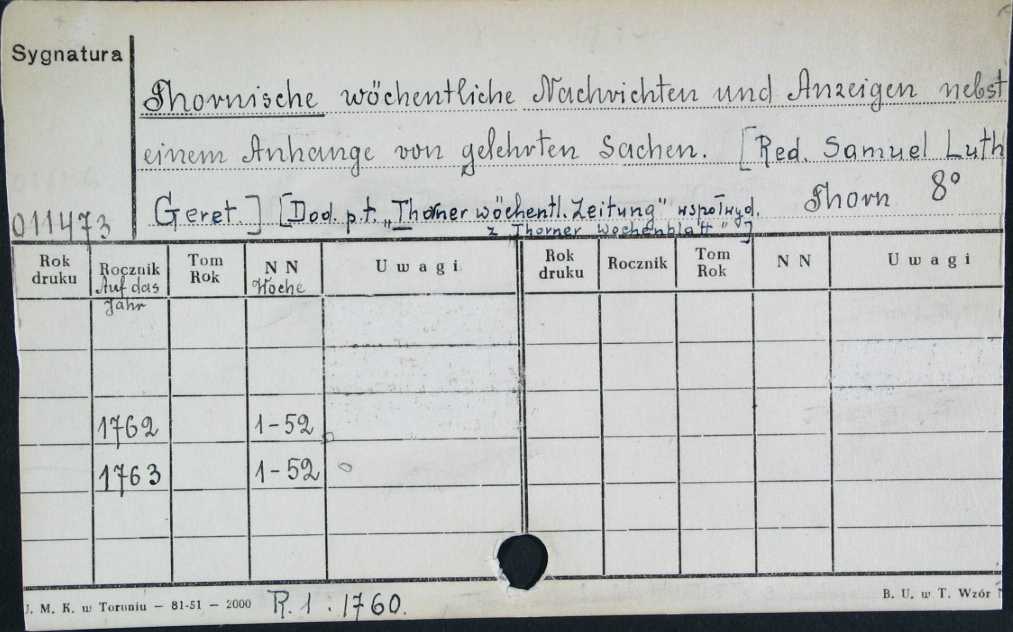 Sygnatura
Thornische wöchentliche Nachrichten und Anzeigen nebst
einem Anhange von gelehrten Sachen. [Red. Samuel Luth
Geret.] [Dod. p.t. „Thorner wöchentl. Zeitung" współwyd. Thorn 8°
z „Thorner Wochenblatt"]
011473
Rok druku Rocznik Tom Rok N N Uwagi Rok druku Rocznik Tom Rok N N Uwagi
Auf das Jahr Woche
1762 1-52
1763 1-52
U. M. K. w Toruniu — 81-51 — 2000 R. 1 : 1760. B. U. w T. Wzór